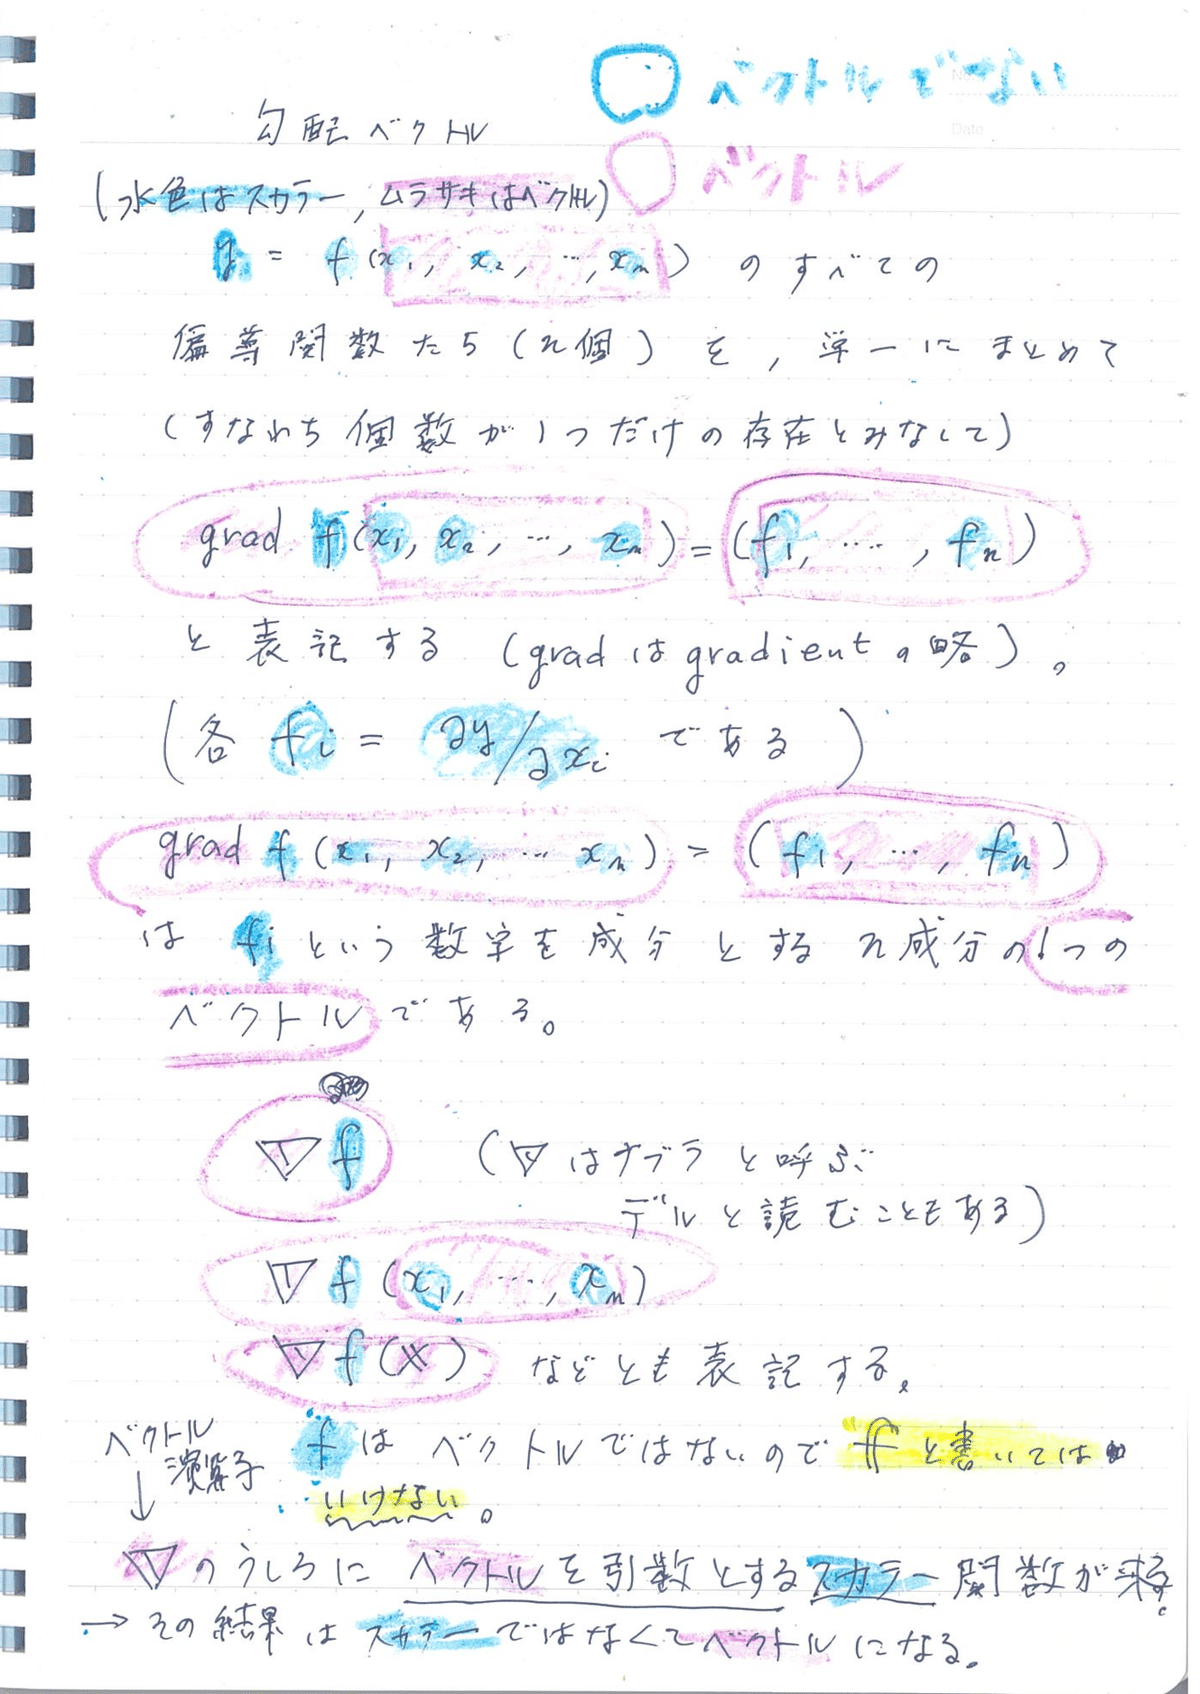 ○ ベクトルでない
No.
Date
勾配ベクトル
○ ベクトル
(水色はスカラー, ムラサキはベクトル)
y = f(x₁, x₂, …, xₙ) のすべての
偏導関数たち(n個)を,単一にまとめて
(すなわち個数が1つだけの存在とみなして)
grad f(x₁, x₂, …, xₙ) = (f₁, …., fₙ)
と表記する (gradはgradientの略)。
(各 fᵢ = ∂y/∂xᵢ である)
grad f (x₁, x₂, … xₙ) = (f₁, …, fₙ)
は fᵢ という数字を成分とするn成分の1つの
ベクトルである。
∇f (∇はナブラと呼ぶ
デルと読むこともある)
∇f (x₁, …, xₙ)
∇f(𝕩) などとも表記する。
ベクトル
演算子
↓
fはベクトルではないので 𝕗 と書いては
いけない。
∇のうしろにベクトルを引数とするスカラー関数が来る。
→ その結果はスカラーではなくてベクトルになる。